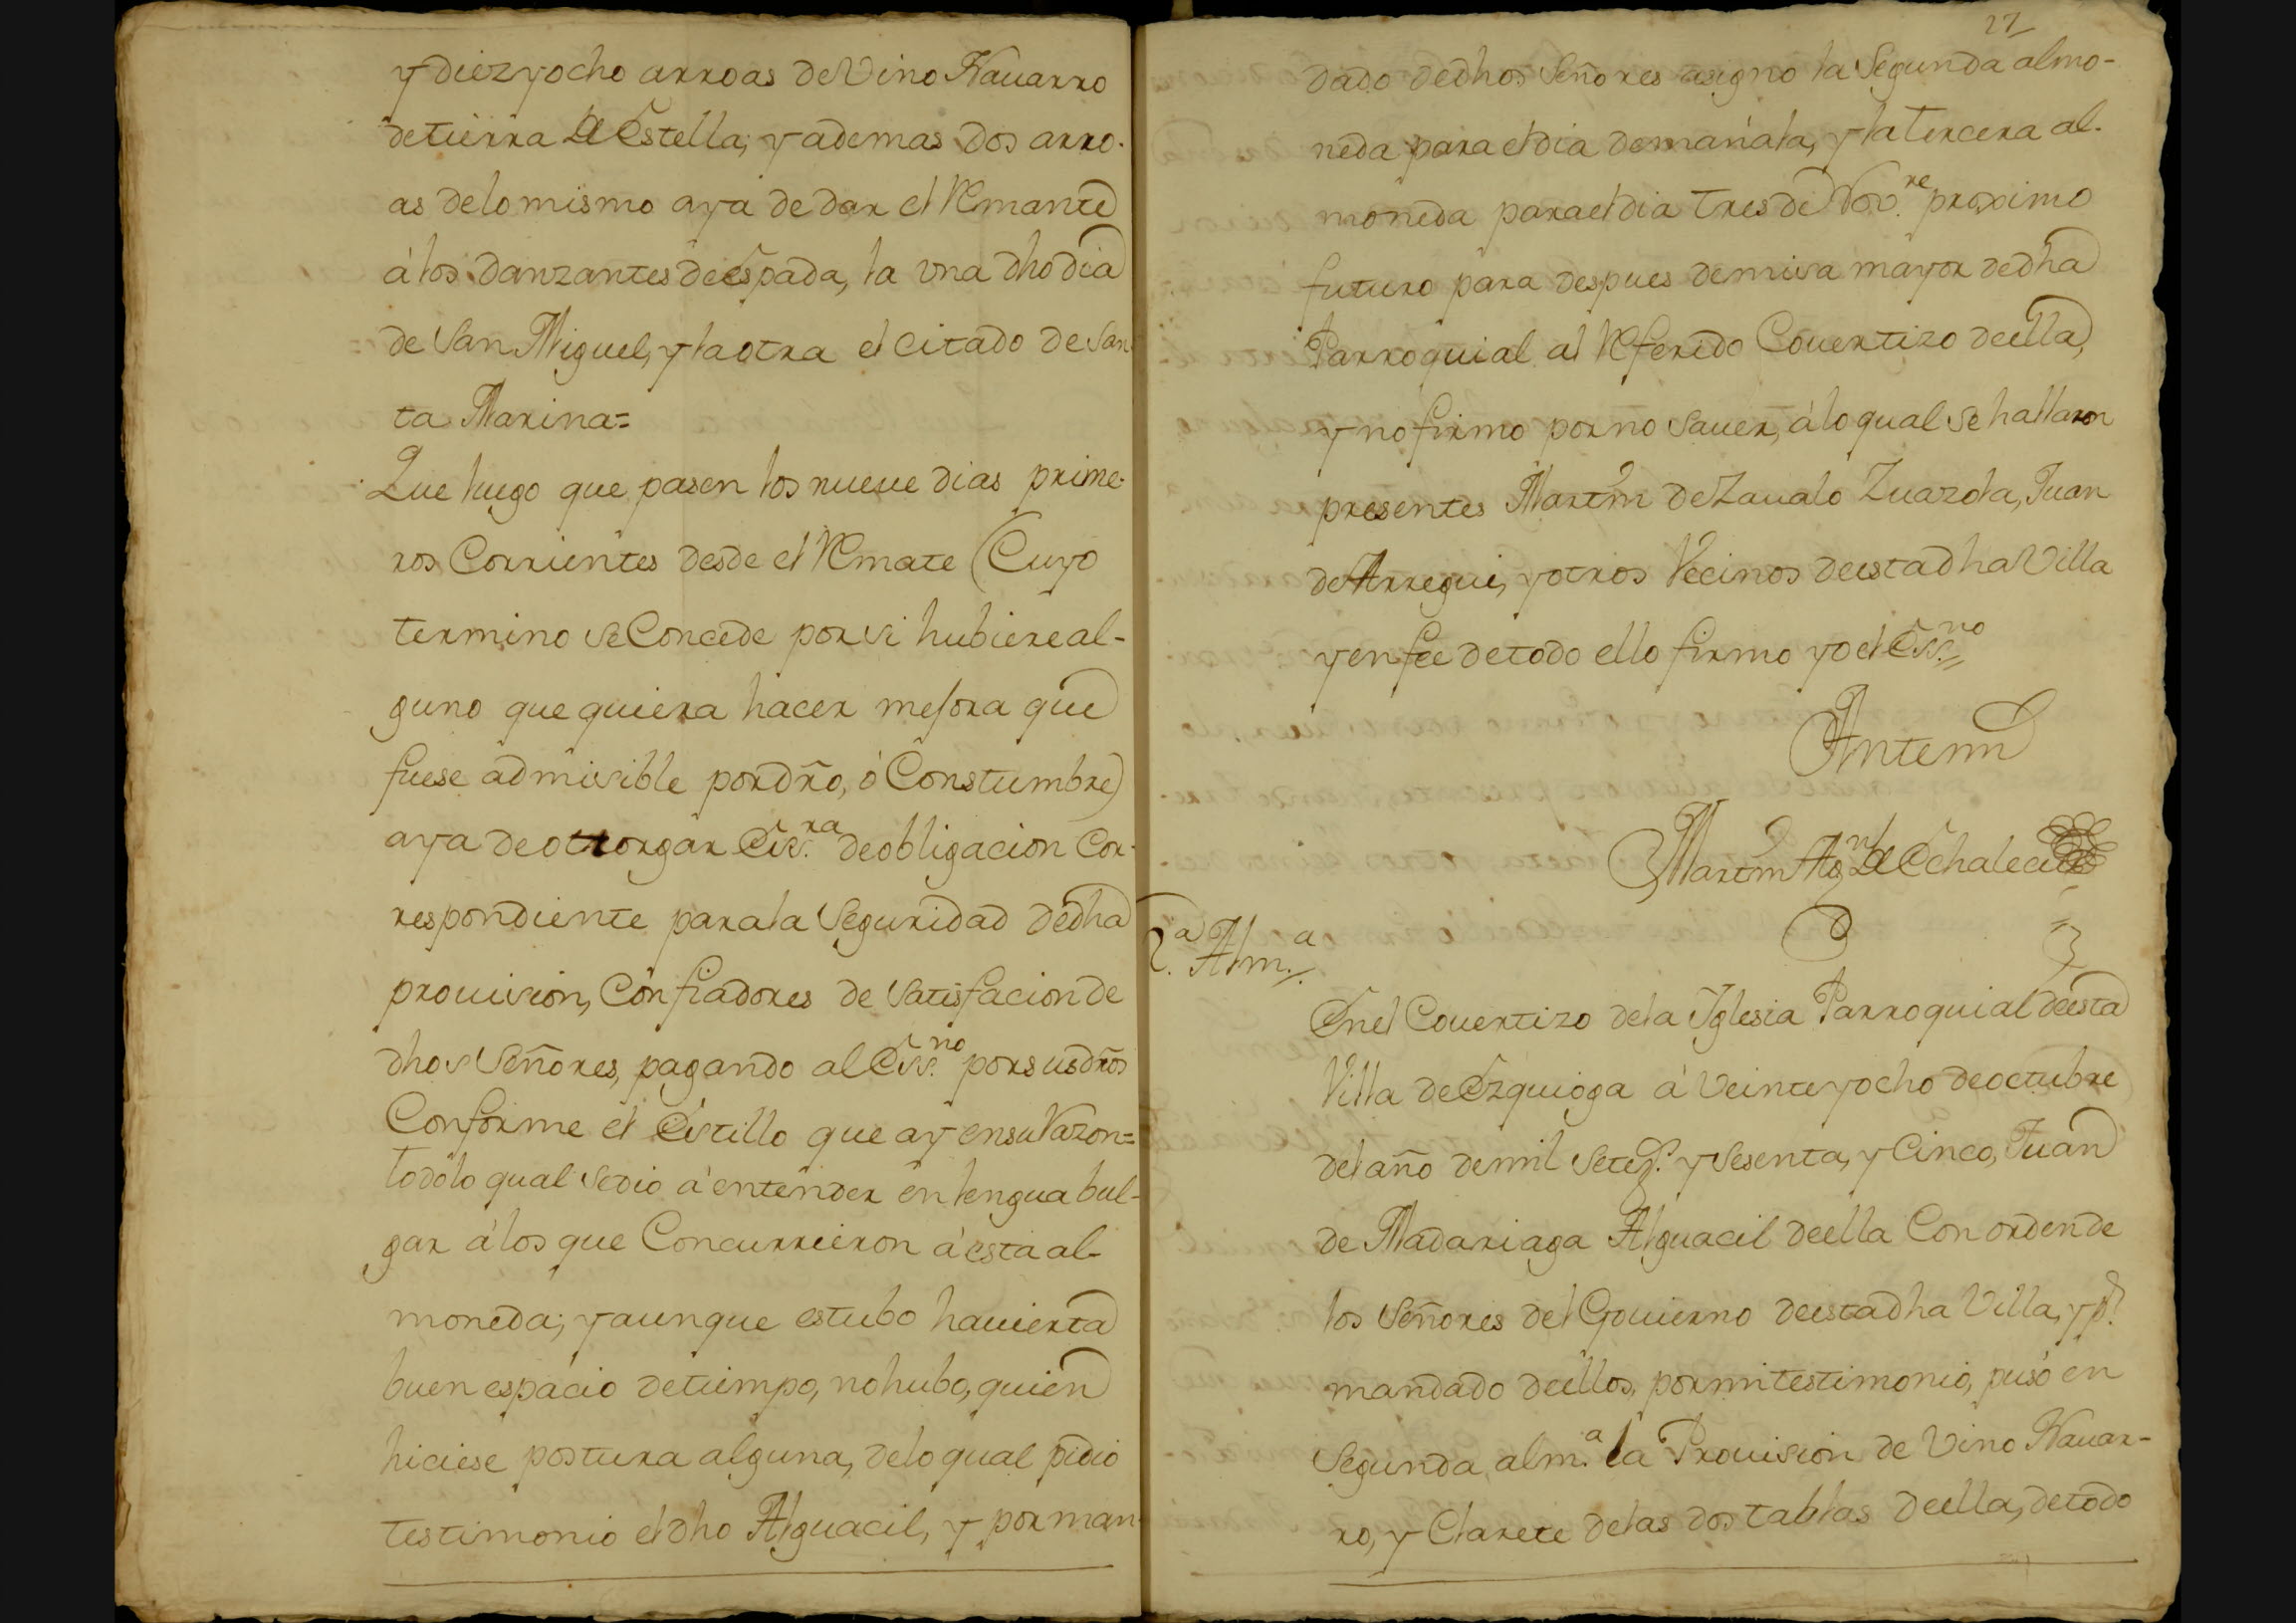 y diez y ocho arroas de Vino Nauarro
de tierra de Estella; y ademas dos arro-
as de lo mismo aya de dar el Remante
á los danzantes de espada, la vna dho dia
de San Miguel, y la otra el citado de San
ta Marina=
Que luego que pasen los nueue dias prime-
ros Corrientes desde el Remate (Cuyo
termino se Concede por si hubiere al-
guno que quiera hacer mejora que
fuese admisible por dro, ó Constumbre)
aya de otorgar Ess.ra de obligacion Cor-
respondiente para la Seguridad de dha
prouision, Con fiadores de Satisfacion de
dhos Señores, pagando al Ess.no por sus dros
Conforme el Estillo que ay en su Razon=
todo lo qual se dio á entender en lengua bul-
gar á los que Concurrieron á esta al-
moneda; y aunque estubo hauierta
buen espacio de tiempo, no hubo, quien
hiciese postura alguna, de lo qual pidio
testimonio el dho Alguacil, y por man-
27
dado de dhos Señores asigno la Segunda almo-
neda para el dia de mañala, y la tercera al-
moneda para el dia tres de Nov.re proximo
futuro para despues de misa mayor de dha
Parroquial al Referido Couertizo de ella,
y no firmo por no sauer, á lo qual se hallaron
presentes Martin de Zaualo Zuazola, Juan
de Arregui, y otros Vecinos de esta dha Villa
y en fee de todo ello firmo yo el Ess.no=
Antemi
Martin Ag.n de Echalecu
2.a Alm.a
En el Couertizo de la Yglesia Parroquial de esta
Villa de Ezquioga á Veinte y ocho de octubre
del año de mil Setez.s y Sesenta, y Cinco, Juan
de Madariaga Alguacil de ella Con orden de
los Señores del Gouierno de esta dha Villa, y p.r
mandado de ellos, por mi testimonio, puso en
Segunda alm.a la Prouision de Vino Nauar-
ro, y Clarete de las dos tablas de ella, de todo